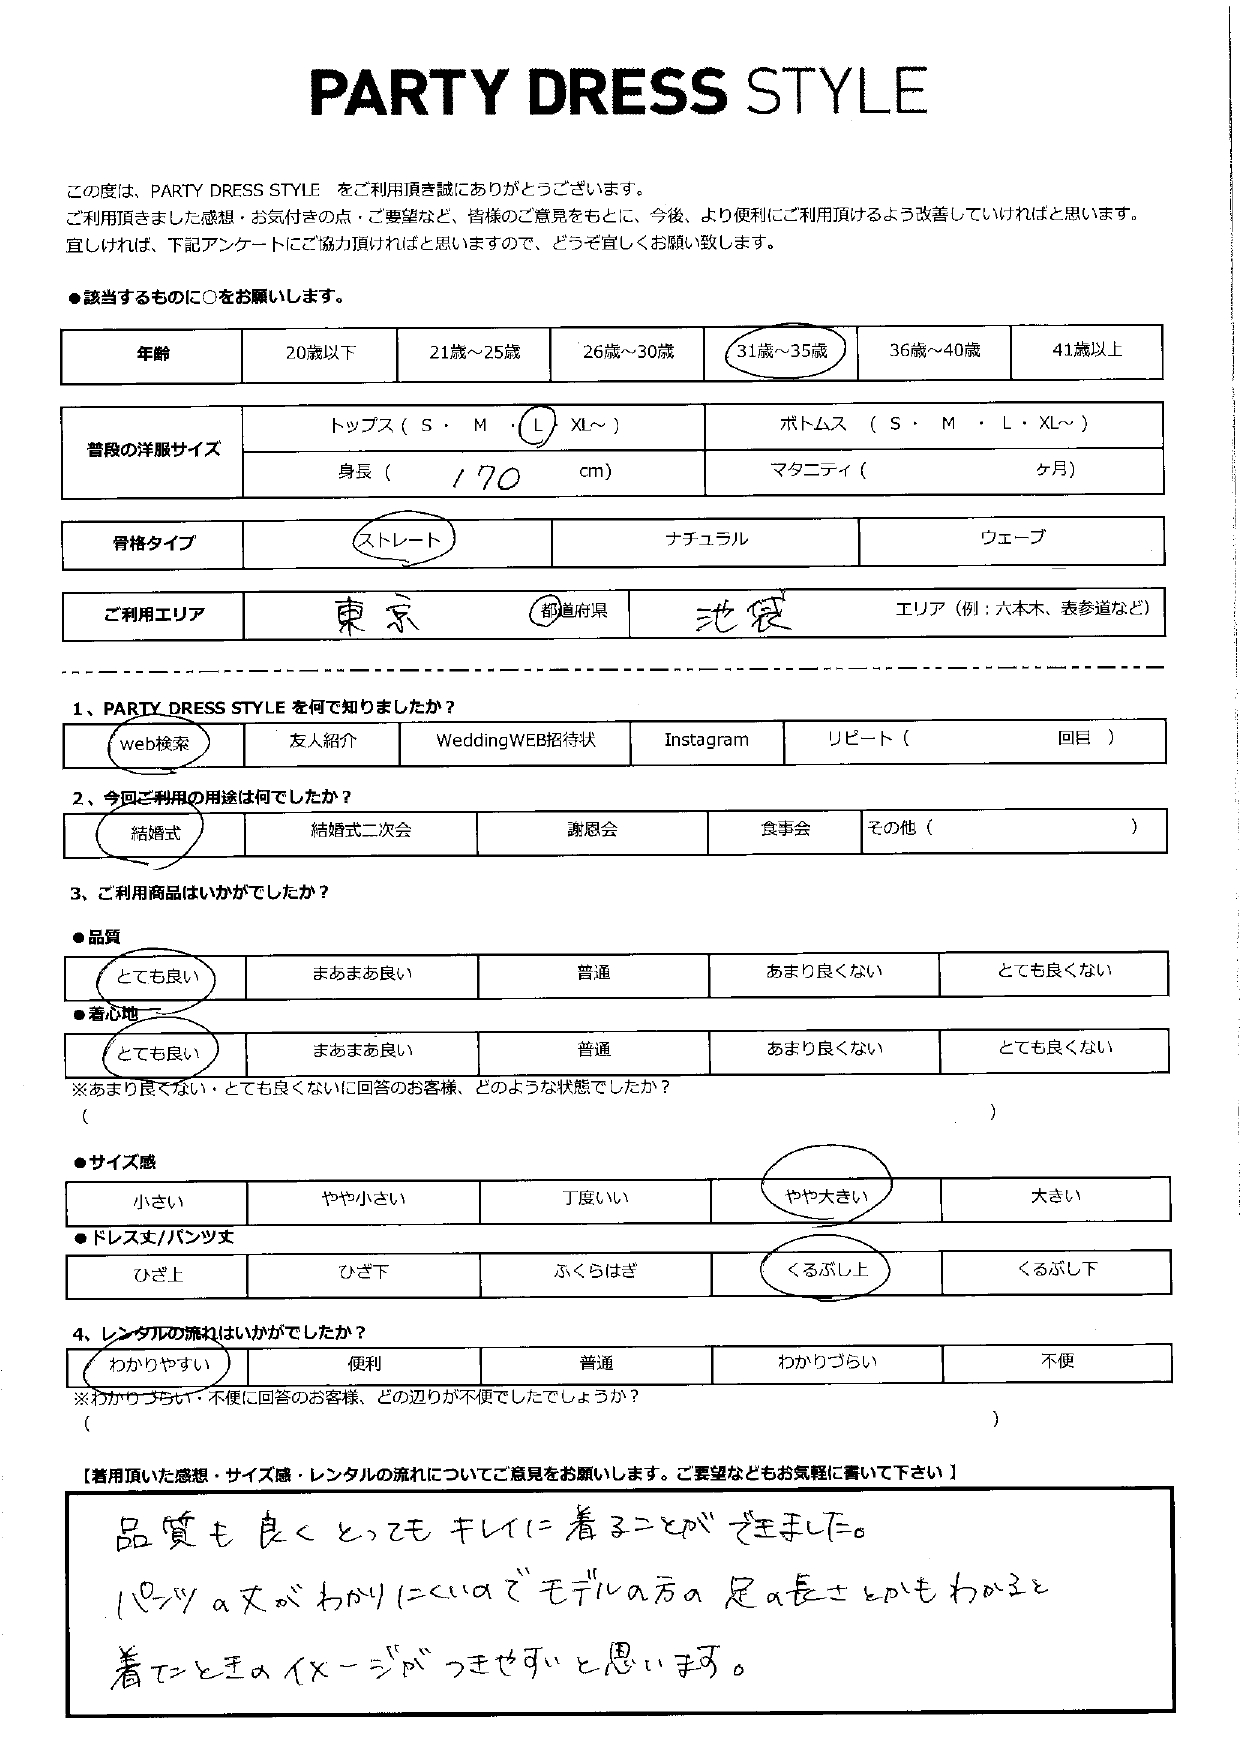 PARTY DRESS STYLE
この度は、PARTY DRESS STYLE をご利用頂き誠にありがとうございます。
ご利用頂きました感想・お気付きの点・ご要望など、皆様のご意見をもとに、今後、より便利にご利用頂けるよう改善していければと思います。
宜しければ、下記アンケートにご協力頂ければと思いますので、どうぞ宜しくお願い致します。
●該当するものに○をお願いします。
年齢 20歳以下 21歳～25歳 26歳～30歳 31歳～35歳 36歳～40歳 41歳以上
普段の洋服サイズ
トップス ( S ・ M ・ L ・ XL～ ) ボトムス ( S ・ M ・ L ・ XL～ )
身長 ( 170 cm) マタニティ ( ヶ月)
骨格タイプ ストレート ナチュラル ウェーブ
ご利用エリア 東京 都道府県 池袋 エリア（例：六本木、表参道など）
1、PARTY DRESS STYLE を何で知りましたか？
web検索 友人紹介 WeddingWEB招待状 Instagram リピート ( 回目 )
2、今回ご利用の用途は何でしたか？
結婚式 結婚式二次会 謝恩会 食事会 その他 ( )
3、ご利用商品はいかがでしたか？
●品質
とても良い まあまあ良い 普通 あまり良くない とても良くない
●着心地
とても良い まあまあ良い 普通 あまり良くない とても良くない
※あまり良くない・とても良くないに回答のお客様、どのような状態でしたか？
( )
●サイズ感
小さい やや小さい 丁度いい やや大きい 大きい
●ドレス丈/パンツ丈
ひざ上 ひざ下 ふくらはぎ くるぶし上 くるぶし下
4、レンタルの流れはいかがでしたか？
わかりやすい 便利 普通 わかりづらい 不便
※わかりづらい・不便に回答のお客様、どの辺りが不便でしたでしょうか？
( )
【着用頂いた感想・サイズ感・レンタルの流れについてご意見をお願いします。ご要望などもお気軽に書いて下さい 】
品質も良くとってもキレイに着ることができました。
パンツの丈がわかりにくいのでモデルの方の足の長さとかもわかると
着たときのイメージがつきやすいと思います。